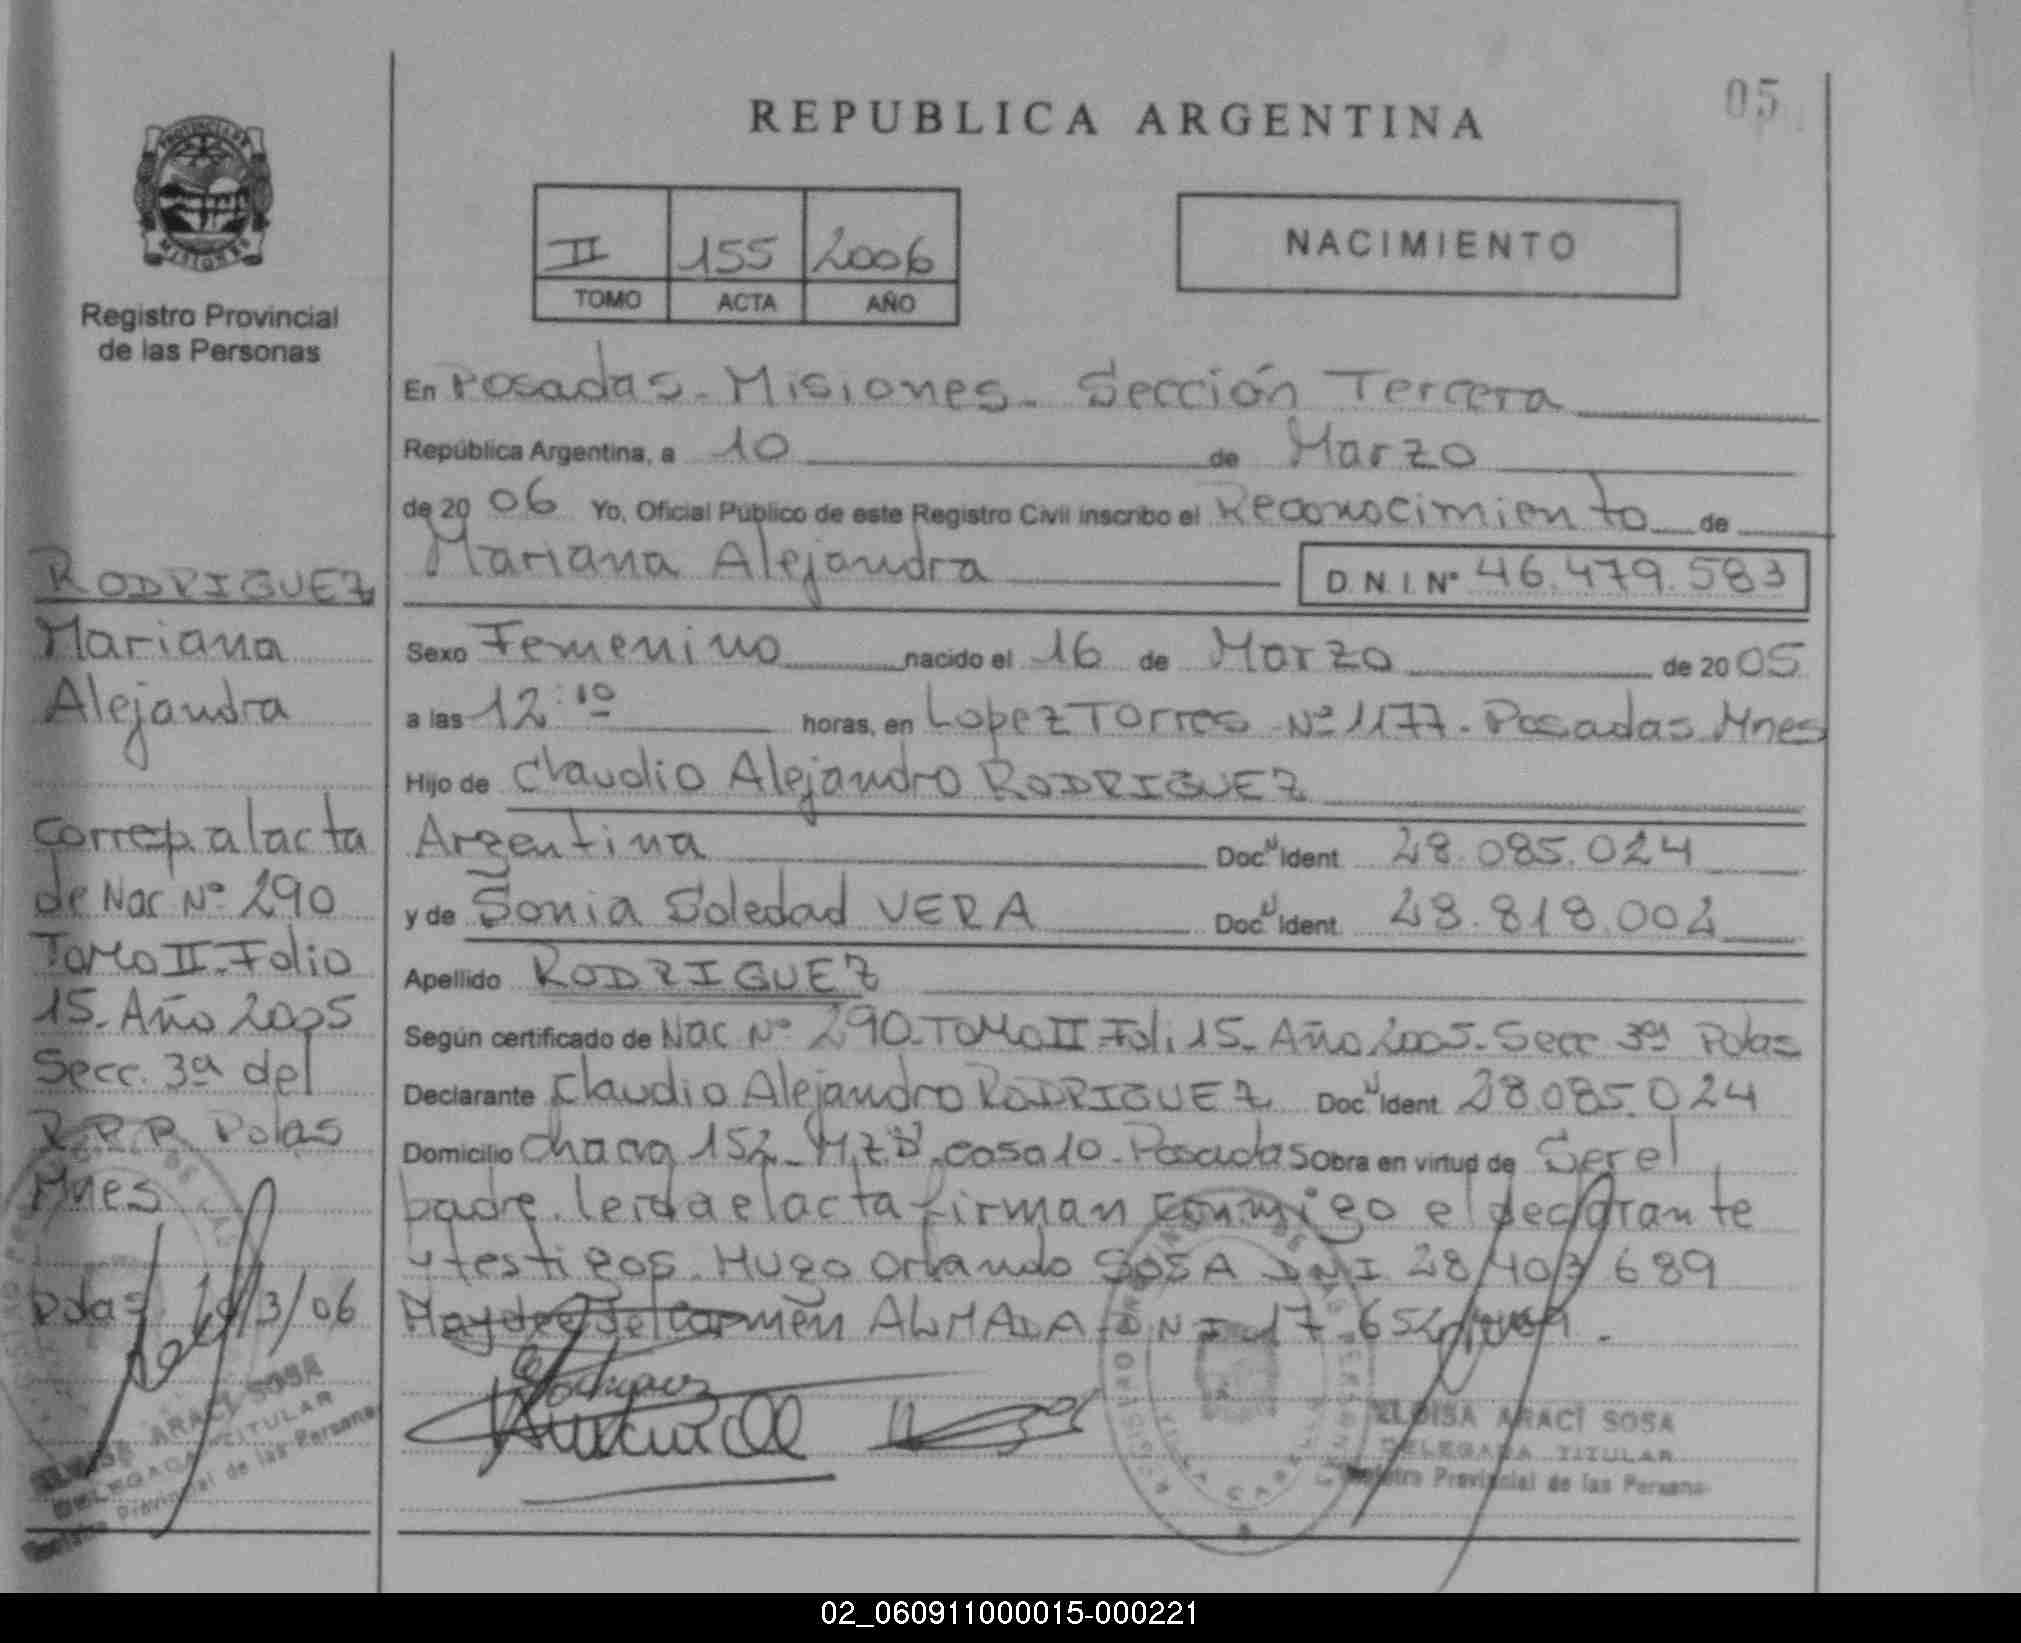 05
REPUBLICA ARGENTINA
PROVINCIA DE
MISIONES
Registro Provincial
de las Personas
II 155 2006
TOMO ACTA AÑO
NACIMIENTO
En Posadas - Misiones - Sección Tercera
República Argentina, a 10 de Marzo
de 20 06 Yo, Oficial Público de este Registro Civil inscribo el Reconocimiento de
Mariana Alejandra D.N.I. Nº 46.479.583
Sexo Femenino nacido el 16 de Marzo de 20 05
a las 12:10 horas, en Lopez Torres Nº 1177 - Posadas Mnes
Hijo de Claudio Alejandro RODRIGUEZ
Argentina Doc Ident 28.085.024
y de Sonia Soledad VERA Doc Ident 28.818.002
Apellido RODRIGUEZ
Según certificado de Nac Nº 290 - Tomo II Fol. 15 - Año 2005 - Secc 3ª Pdas
Declarante Claudio Alejandro RODRIGUEZ Doc Ident 28.085.024
Domicilio Chacra 152 - Mz casa 10 - Posadas Obra en virtud de Ser el
padre. leida el acta firman conmigo el declarante
y testigos. Hugo Orlando SOSA DNI 28.403.689
Haydee del Carmen ALMADA DNI 17.652
ELOISA ARACI SOSA
DELEGADA TITULAR
Registro Provincial de las Personas
RODRIGUEZ
Mariana
Alejandra
Corresp. al acta
de Nac Nº 290
Tomo II - Folio
15 - Año 2005
Secc. 3ª del
R.P.P. Pdas
Mnes
Pdas 10/3/06
ELOISA ARACI SOSA
DELEGADA TITULAR
Registro Provincial de las Personas
02_060911000015-000221